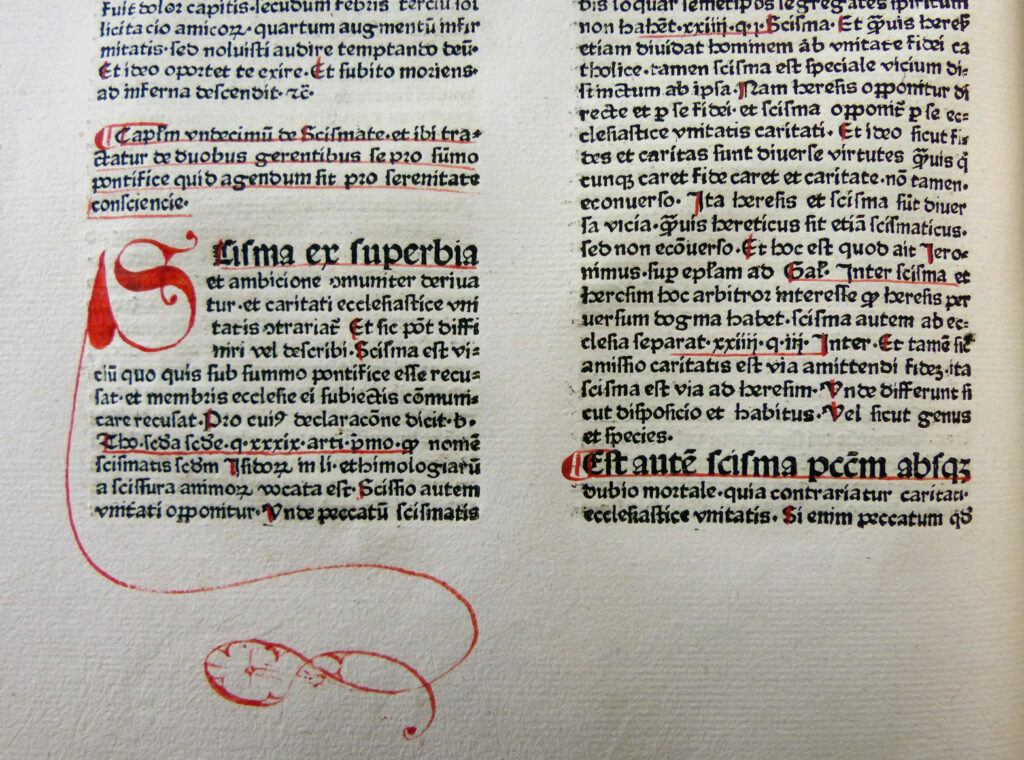 fuit dolor capitis. secūdum febris terciū sol
licitacio amicoꝝ. quartum augmentū infir
mitatis. sed noluisti audire temptando deū.
Et ideo oportet te exire. Et subito moriens.
ad inferna descendit. ⁊c̄.
Capłm vndecimū de Scismate. et ibi tra⸗
ctatur de duobus gerentibus se pro sūmo
pontifice quid agendum sit pro serenitate
consciencie.
SCisma ex superbia
et ambicione ꝯmuniter deriua
tur. et caritati ecclesiastice vni
tatis ꝯtrariat̄ Et sic pōt diffi
niri vel describi. Scisma est vi⸗
ciū quo quis sub summo pontifice esse recu⸗
sat. et membris ecclesie ei subiectis cōmuni⸗
care recusat. Pro cuiꝰ declaracōne dicit. b.
Tho. scd̄a scd̄e. q. xxxix. arti. p̄mo. ꝙ nomē
scismatis scd̄m Isidoꝝ in li. ethimologiarū
a scissura animoꝝ vocata est. Scissio autem
vnitati opponitur. Vnde peccatū scismatis
bis loquar semetipōs segregātes spiritum
non habēt. xxiiij. q. j. Scisma. Et q̄uis heres̄
etiam diuidat hominem ab vnitate fidei ca
tholice. tamen scisma est speciale vicium di⸗
stinctum ab ipsa. Nam heresis opponitur di
recte et ꝑ se fidei. et scisma opponit̄ ꝑ se ec⸗
clesiastice vnitatis caritati. Et ideo sicut fi⸗
des et caritas sunt diuerse virtutes q̄uis q̄
cunqꝫ caret fide caret et caritate. nō tamen.
econuerso. Ita heresis et scisma sūt diuer
sa vicia. q̄uis hereticus sit etiā scismaticus.
sed non ecōuerso. Et hoc est quod ait Iero⸗
nimus. sup eplam ad Gał. Inter scisma et
heresim hoc arbitror interesse ꝙ heresis per
uersum dogma habet. scisma autem ab ec⸗
clesia separat. xxiiij. q. iij. Inter. Et tamē sic̄
amissio caritatis est via amittendi fidez. ita
scisma est via ad heresim. Vnde differunt si
cut disposicio et habitus. Vel sicut genus
et species.
Est autē scisma pccm̄ absqꝫ
dubio mortale. quia contrariatur caritati.
ecclesiastice vnitatis. Si enim peccatum qd̄